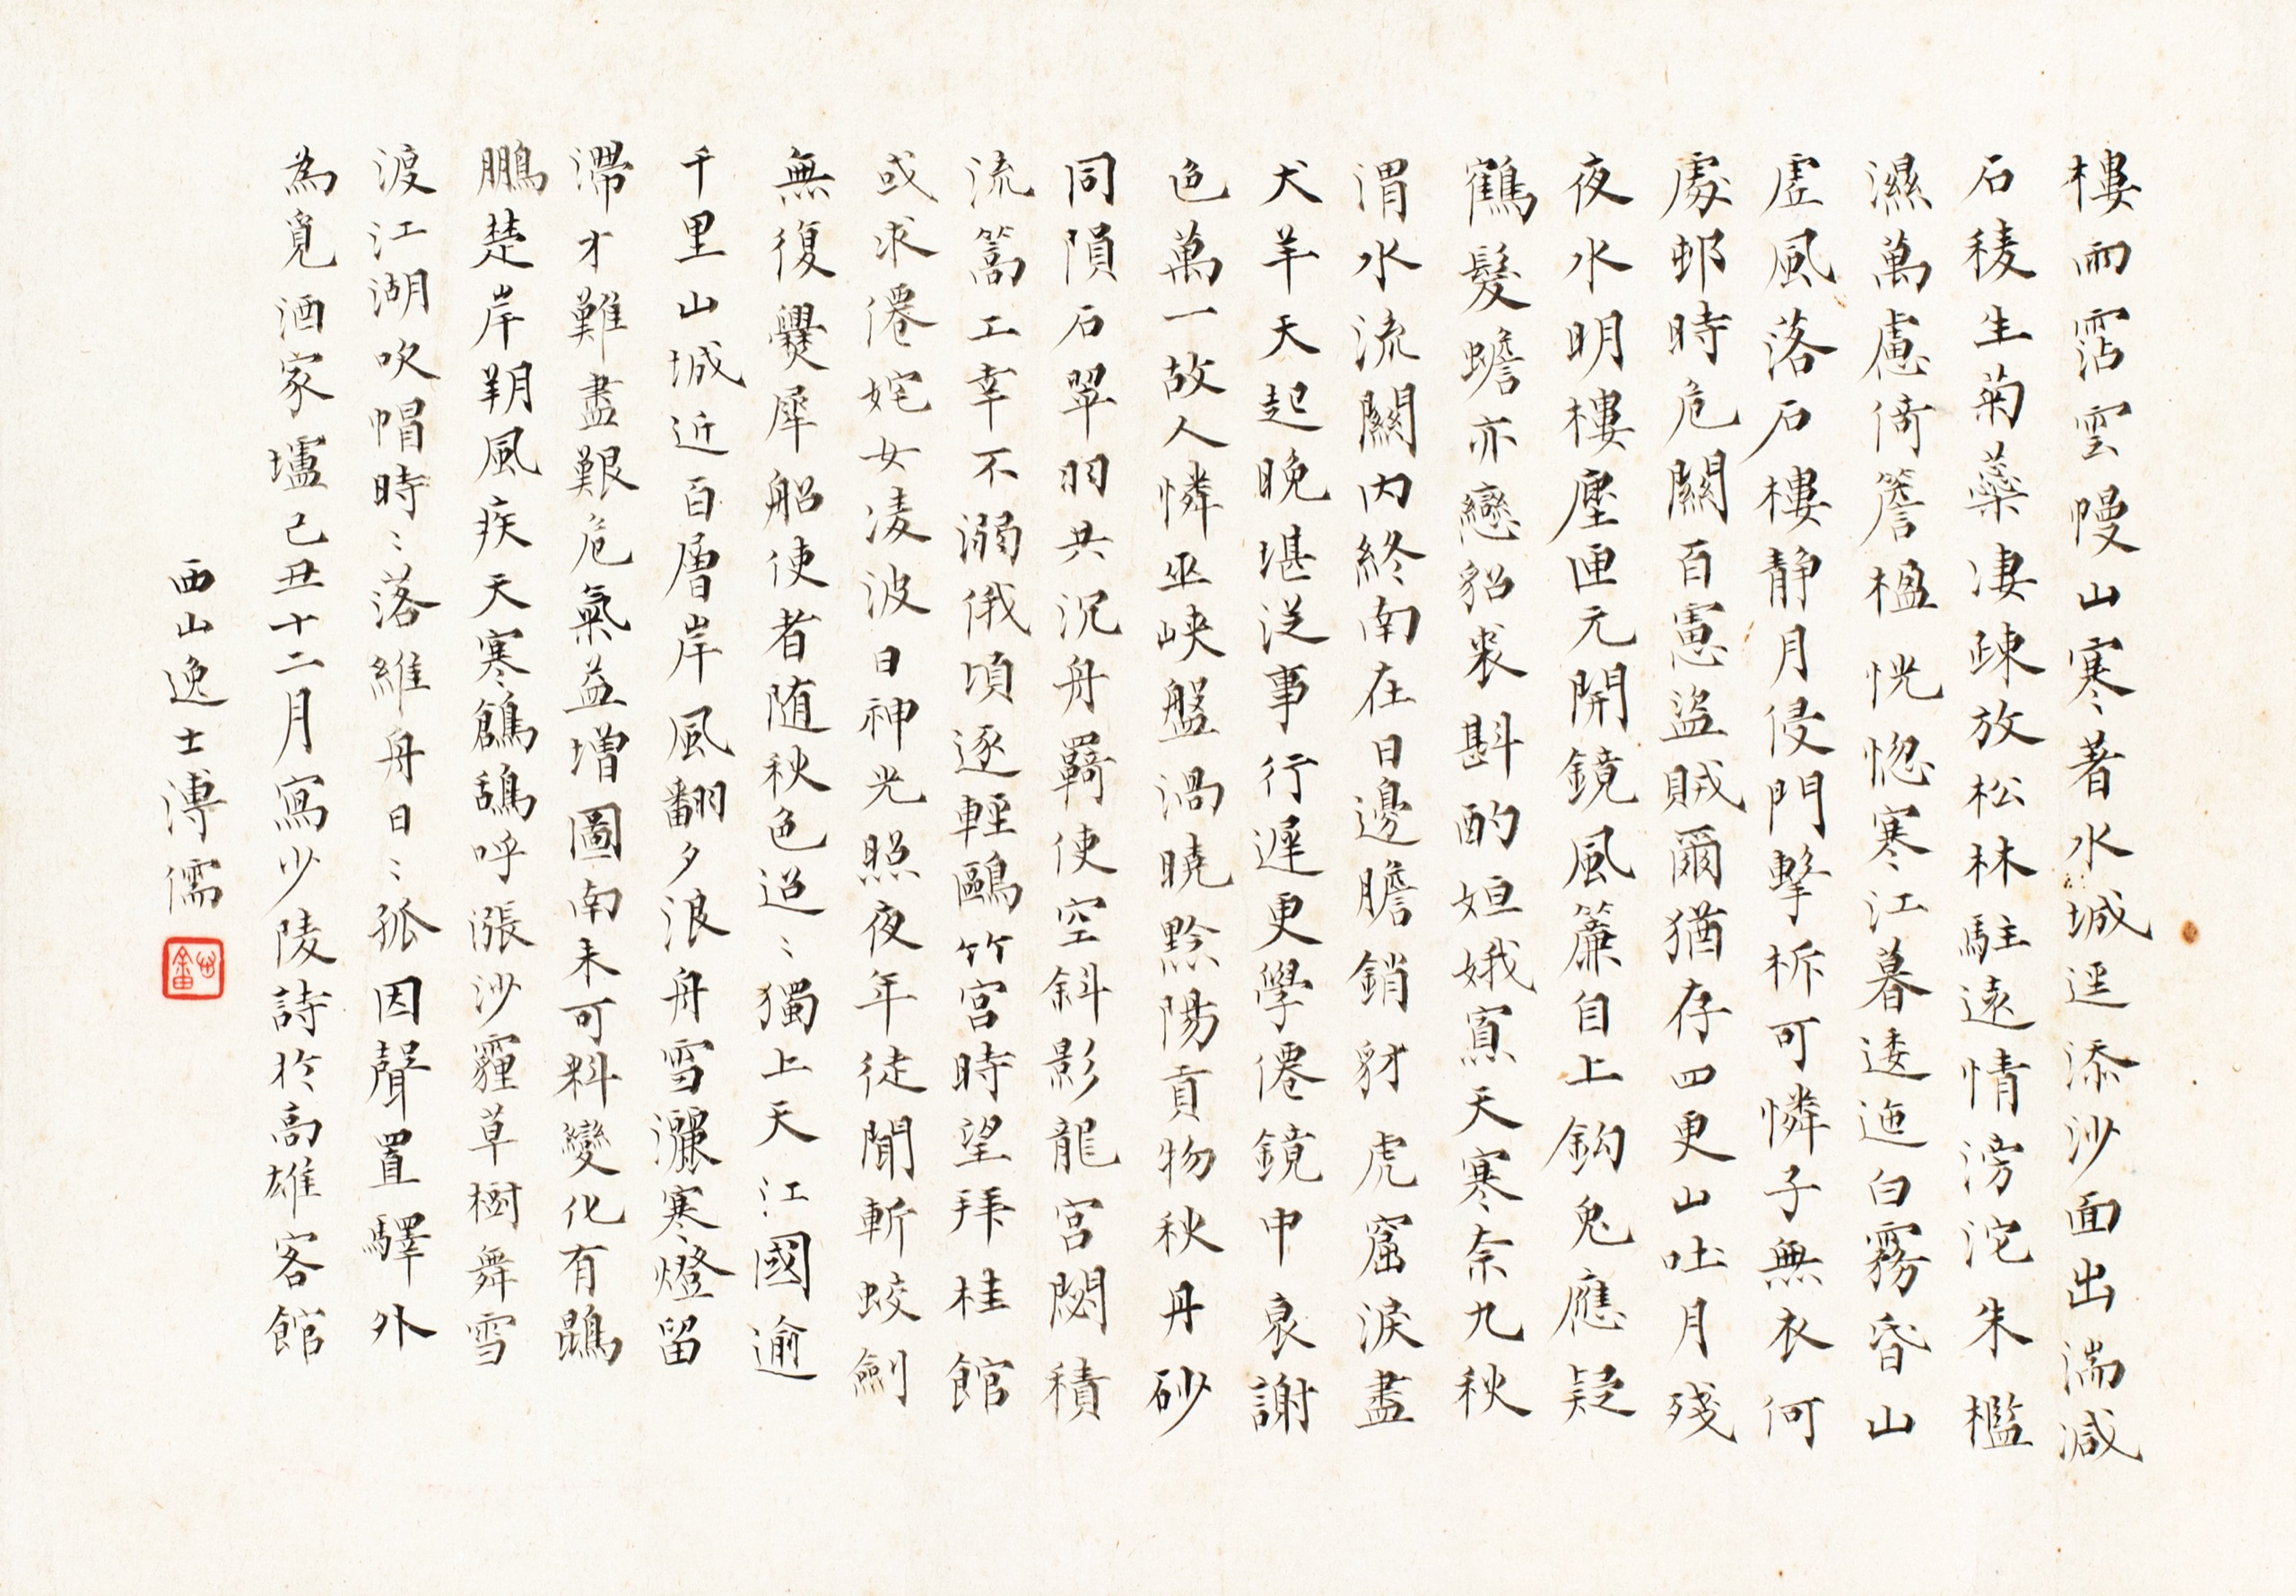 樓雨霑雲幔山寒著水城逕添沙面出湍減
石稜生菊蘂凄疎放松林駐遠情滂沱朱檻
濕萬慮倚簷楹恍惚寒江暮逶迤白霧昏山
虛風落石樓静月侵門擊柝可憐子無衣何
處邨時危關百慮盜賊爾猶存四更山吐月殘
夜水明樓塵匣元開鏡風簾自上鈎兔應疑
鶴髮蟾亦戀貂裘斟酌姮娥寡天寒柰九秋
渭水流關内終南在日邊膽銷豺虎窟淚盡
犬羊天起晚堪從事行遲更學僊鏡中衰謝
色萬一故人憐巫峽盤渦曉黔陽貢物秋丹砂
同隕石翠羽共沉舟羇使空斜影龍宮閟積
流篙工幸不溺俄頃逐輕鷗竹宮時望拜桂館
或求僊姹女凌波日神光照夜年徒聞斬蛟劍
無復爨犀船使者随秋色迢〻獨上天江國逾
千里山城近百層岸風翻夕浪舟雪灑寒燈留
滯才難盡艱危氣益增圖南未可料變化有鵾
鵬楚岸朔風疾天寒鶬鴰呼漲沙霾草樹舞雪
渡江湖吹帽時〻落維舟日〻孤因聲置驛外
為覓酒家壚己丑十二月寫少陵詩於高雄客館
西山逸士溥儒
心畬